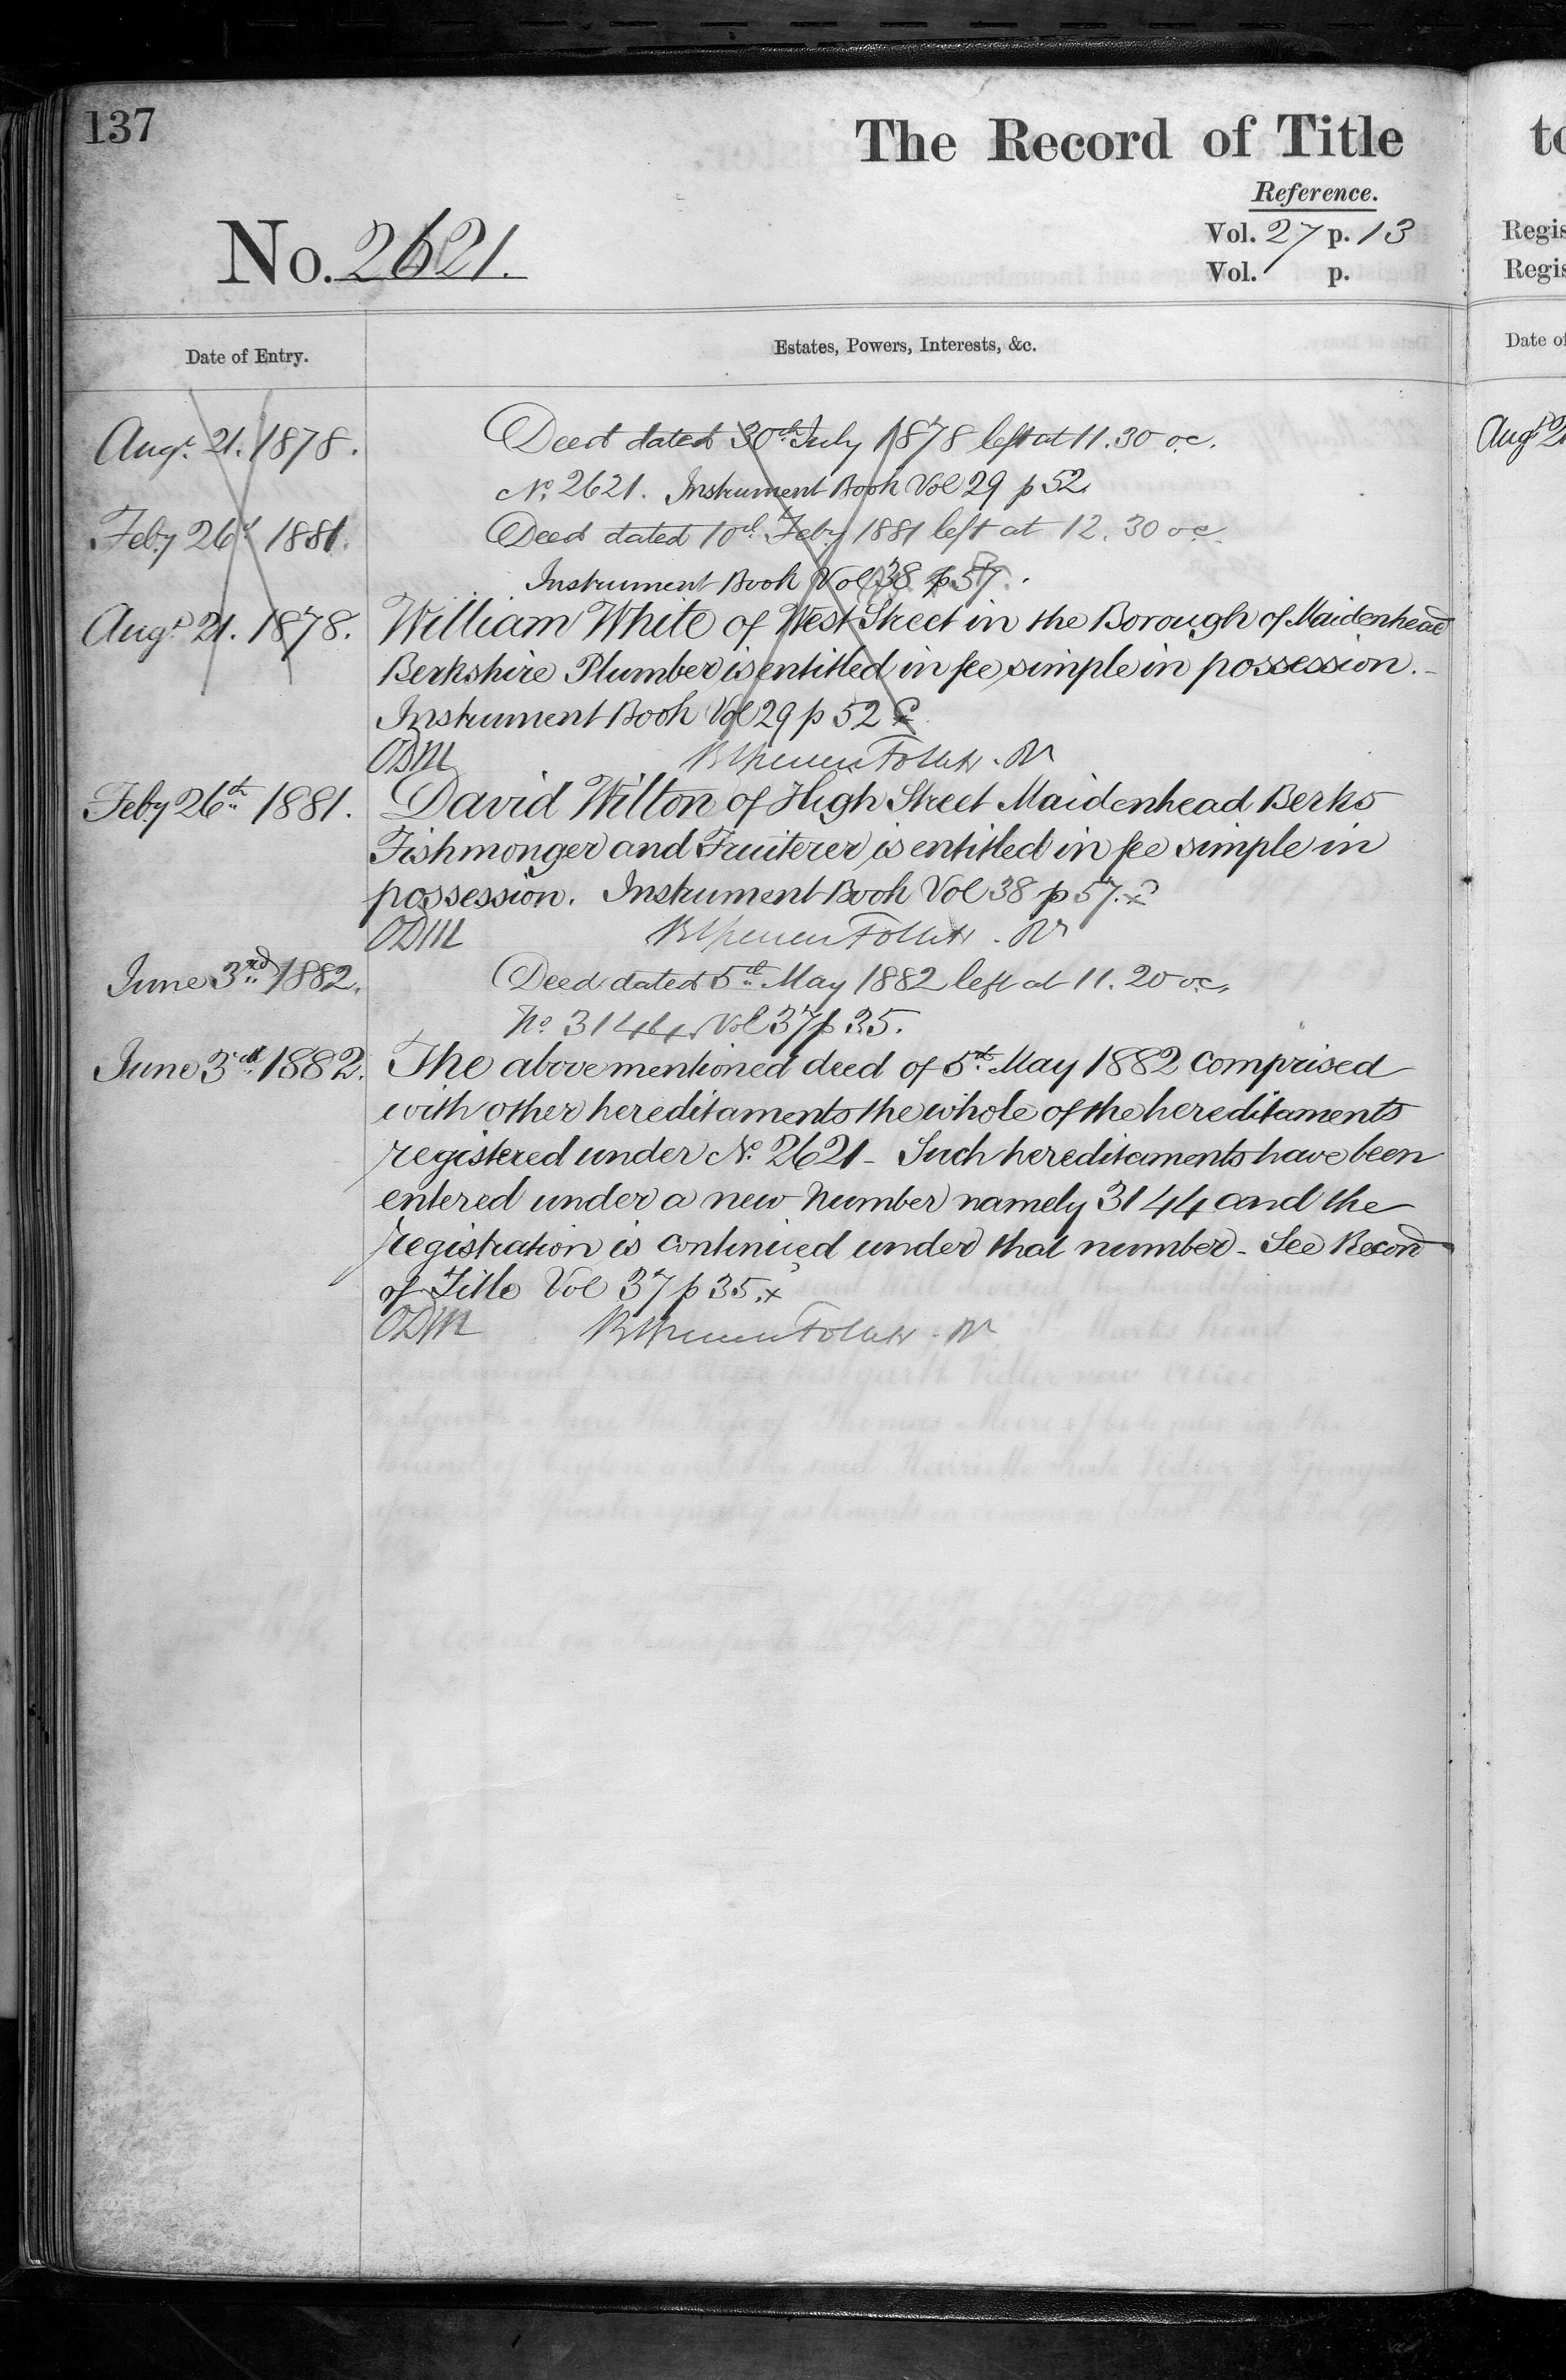 137
The Record of Title
to
Reference.
No. 2621.
Vol. 27 p. 13
Regis
Vol. p.
Regis
Date of Entry.
Estates, Powers, Interests, &c.
Date of
Augt. 21. 1878.
Deed dated 30th July 1878 left at 11.30 oc.
Augt 2
No. 2621. Instrument Book Vol 29 p 52
Feby 26th 1881.
Deed dated 10th Feby 1881 left at 12.30 oc.
Instrument Book Vol 38 p 57.
Augt. 21. 1878.
William White of West Street in the Borough of Maidenhead
Berkshire Plumber is entitled in fee simple in possession.
Instrument Book Vol 29 p 52
ODM
Feby 26th 1881.
David Wilton of High Street Maidenhead Berks
Fishmonger and Fruiterer is entitled in fee simple in
possession. Instrument Book Vol 38 p 57.
ODM
June 3rd 1882.
Deed dated 5th May 1882 left at 11.20 oc.
No. 3144. Vol 37 p 35.
June 3rd 1882.
The above mentioned deed of 5th May 1882 comprised
with other hereditaments the whole of the hereditaments
registered under No. 2621 - Such hereditaments have been
entered under a new number namely 3144 and the
registration is continued under that number - See Record
of Title Vol 37 p 35.
ODM